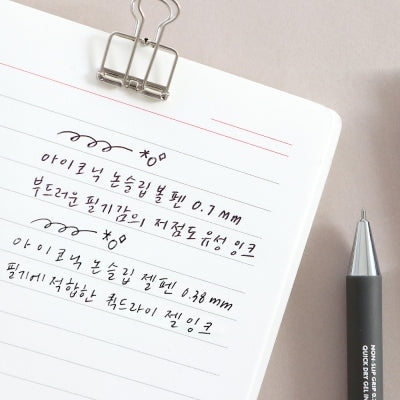 아이코닉 논슬립볼펜 0.7mm
부드러운 필기감의 저점도유성잉크
아이코닉 논슬립 젤펜 0.38mm
필기에적합한 퀵드라이 젤잉크
NON-SLIP GRIP 0.
QUICK DRY GEL IN